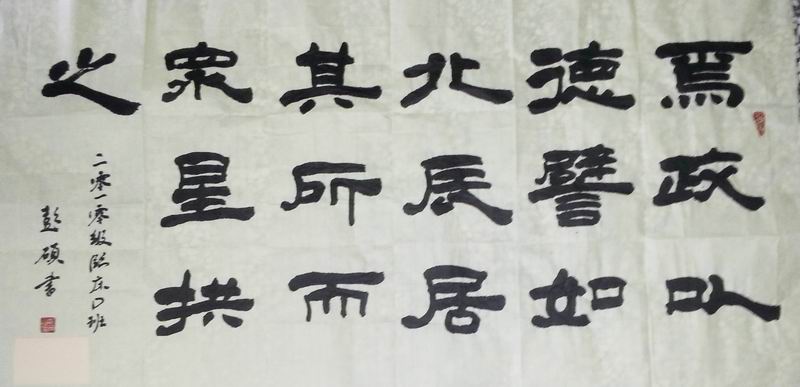 焉政以
德譬如
北辰居
其所而
眾星拱
之
二零一零級臨床口班
彭碩書